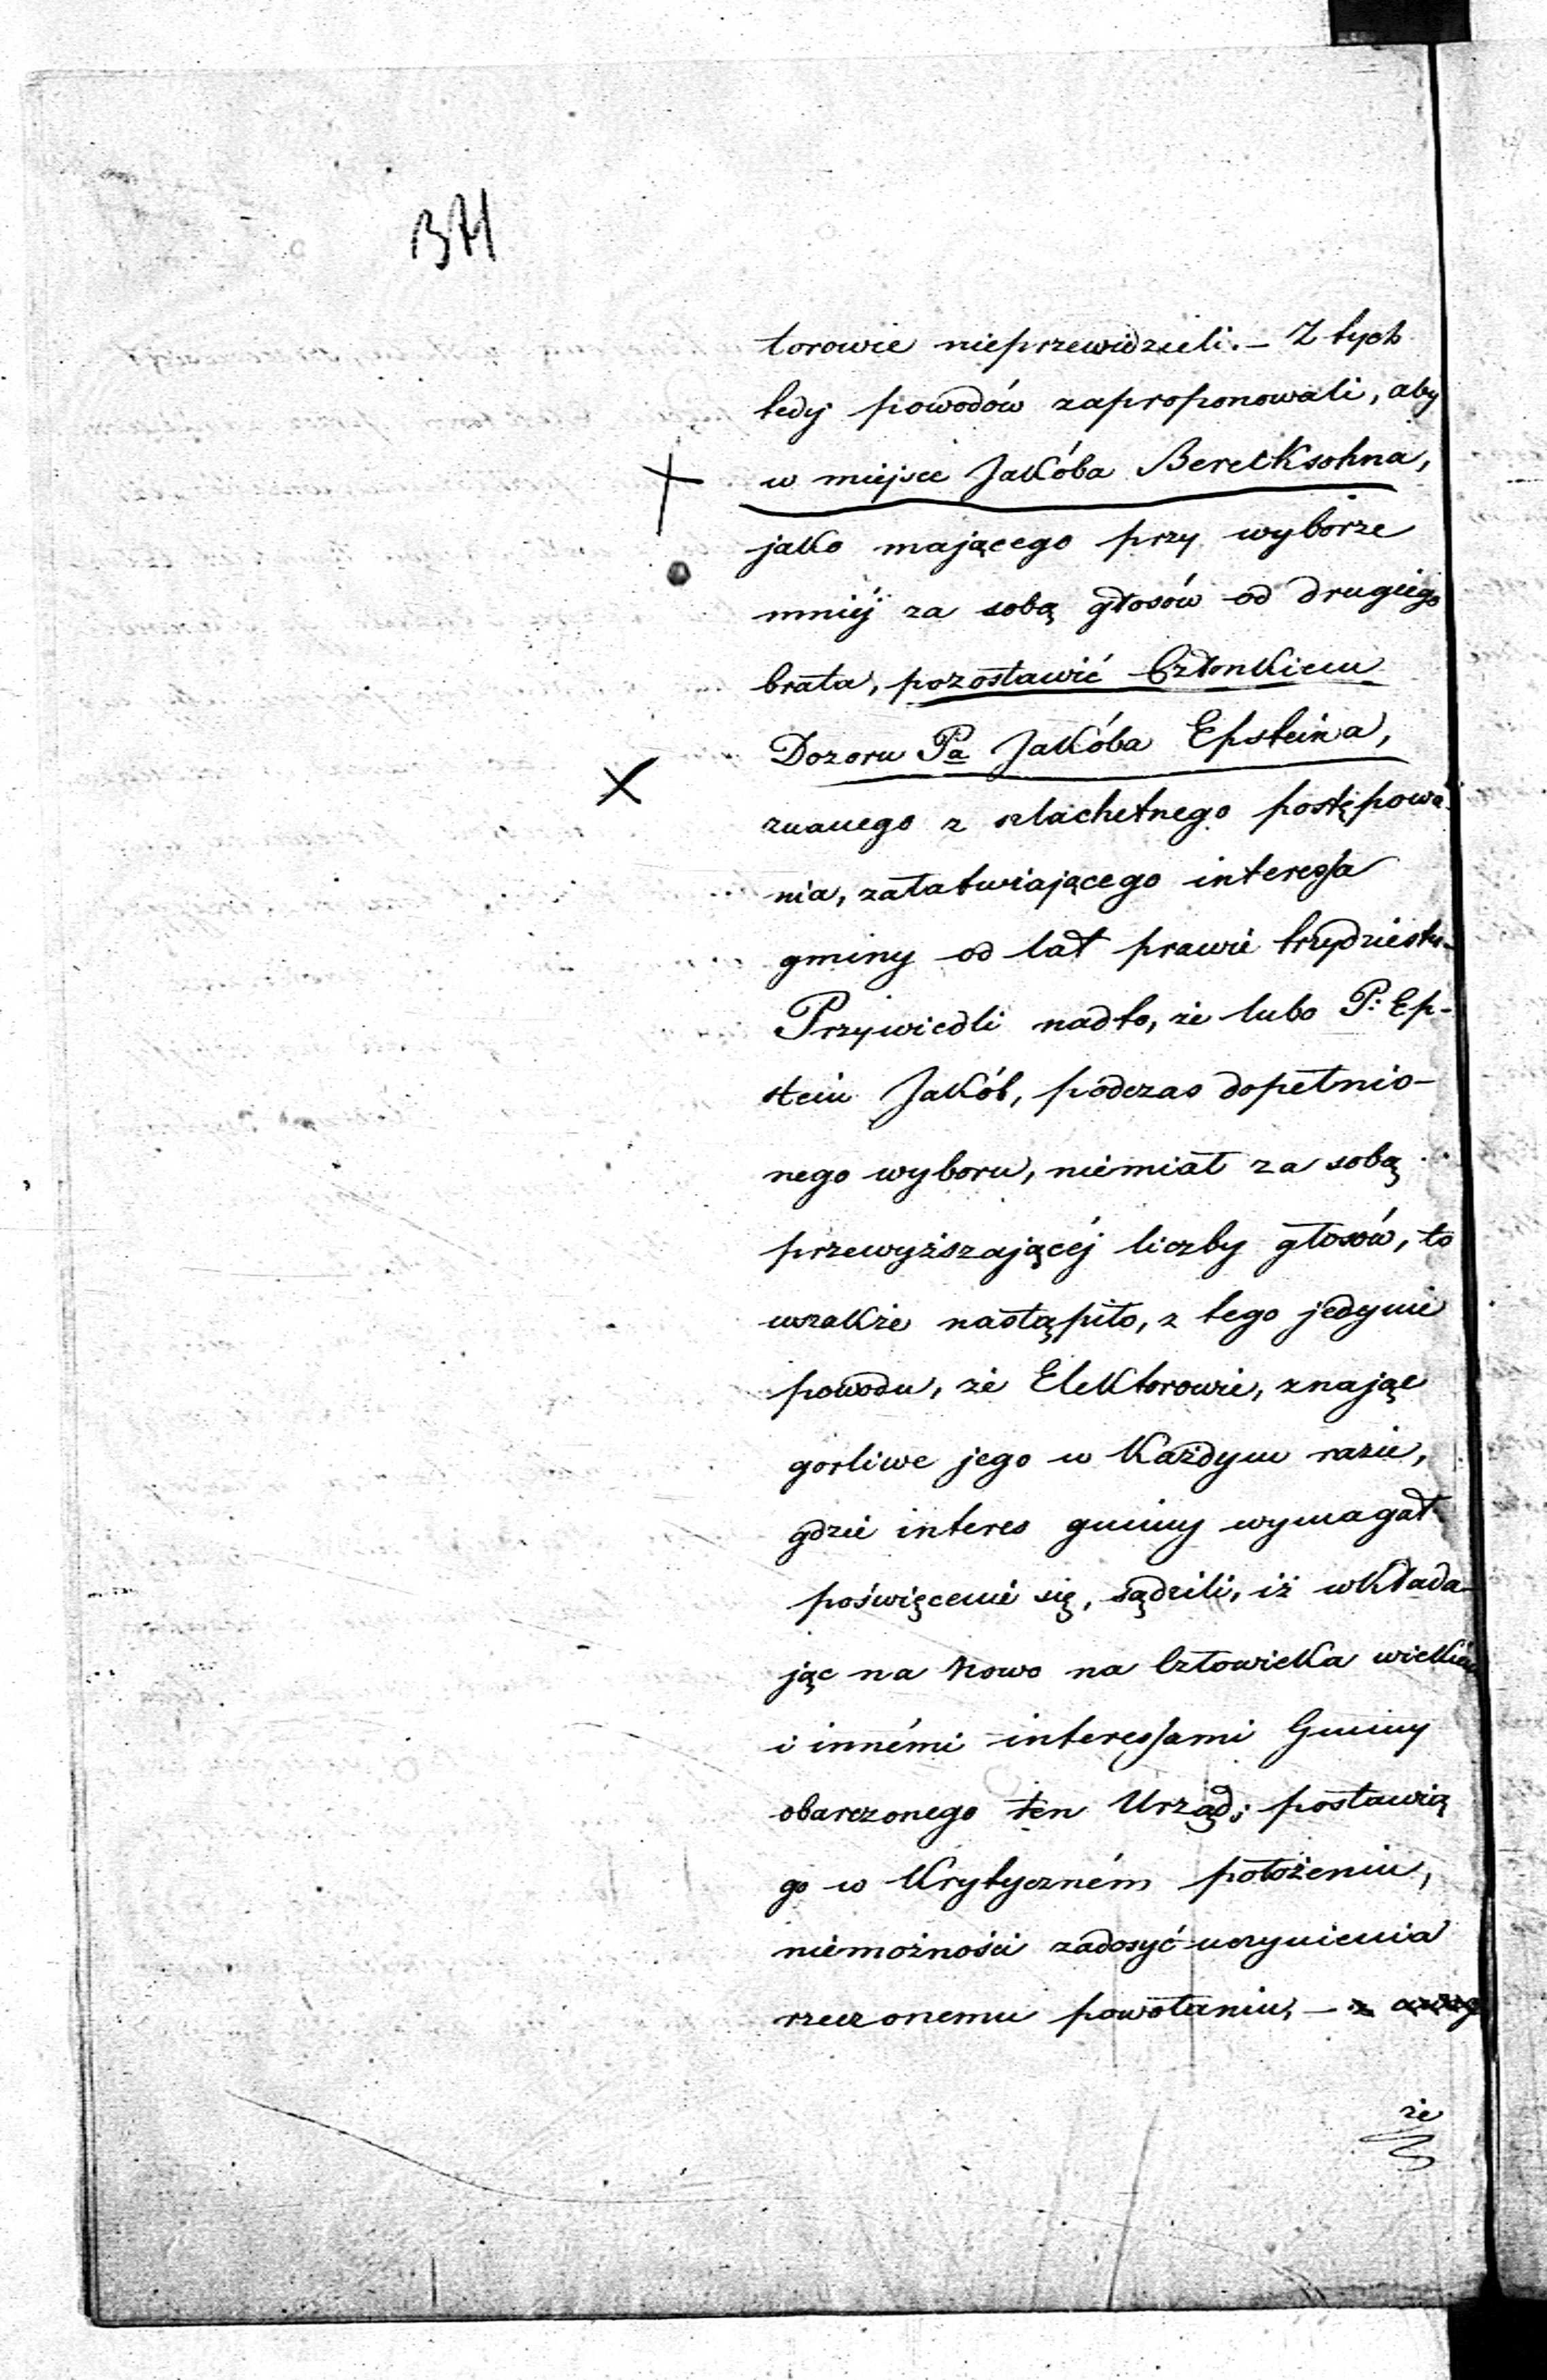 BH
torowie nieprzewidzieli. – Z tych
tedy powodów zaproponowali, aby
w miejsce Jakóba Bereksohna,
jako mającego przy wyborze
mniéj za sobą głosów od drugiego
brata, pozostawić Członkiem
Dozoru Pa Jakóba Epsteina,
znanego z szlachetnego postępowa-
nia, załatwiającego interessa
gminy od lat prawie trzydziestu.
Przywiedli nadto, że lubo P: Ep-
stein Jakób, podczas dopełnio-
nego wyboru, niemiał za sobą
przewyższającéj liczby głosów, to
wszakże nastąpiło, z tego jedynie
powodu, że Elektorowie, znając
gorliwe jego w każdym razie,
gdzie interes gminy wymagał
poświęcenie się, sądzili, iż wkłada-
jąc na nowo na człowieka wielkiemi
i innémi interessami Gminy
obarczonego ten Urząd; postawią
go w krytyczném położeniu,
niemożności zadosyć-uczynienia
rzeczonemu powołaniu, –
że